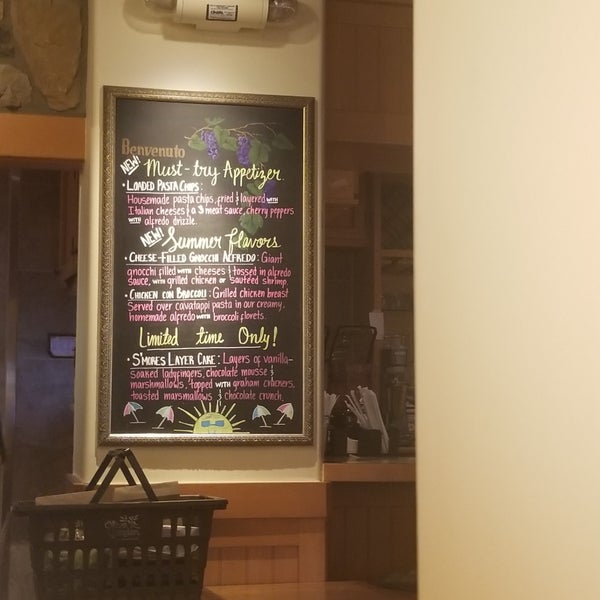 Benvenuto
NEW! Must-try Appetizer.
• LOADED PASTA CHIPS:
Housemade pasta chips, fried & layered WITH
Italian cheeses & a 3 meat sauce, cherry peppers
WITH alfredo drizzle.
NEW! Summer flavors
• CHEESE-FILLED GNOCCHI ALFREDO: Giant
gnocchi filled WITH cheeses & tossed in alfredo
sauce, WITH grilled chicken or sauteed shrimp.
• CHICKEN CON BROCCOLI: Grilled chicken breast
Served over cavatappi pasta in our creamy,
homemade alfredo WITH broccoli florets.
Limited time Only!
• S'MORES LAYER CAKE: Layers of vanilla-
soaked ladyfingers, chocolate mousse &
marshmallows, topped WITH graham crackers,
toasted marshmallows & chocolate crunch.
Olive Garden